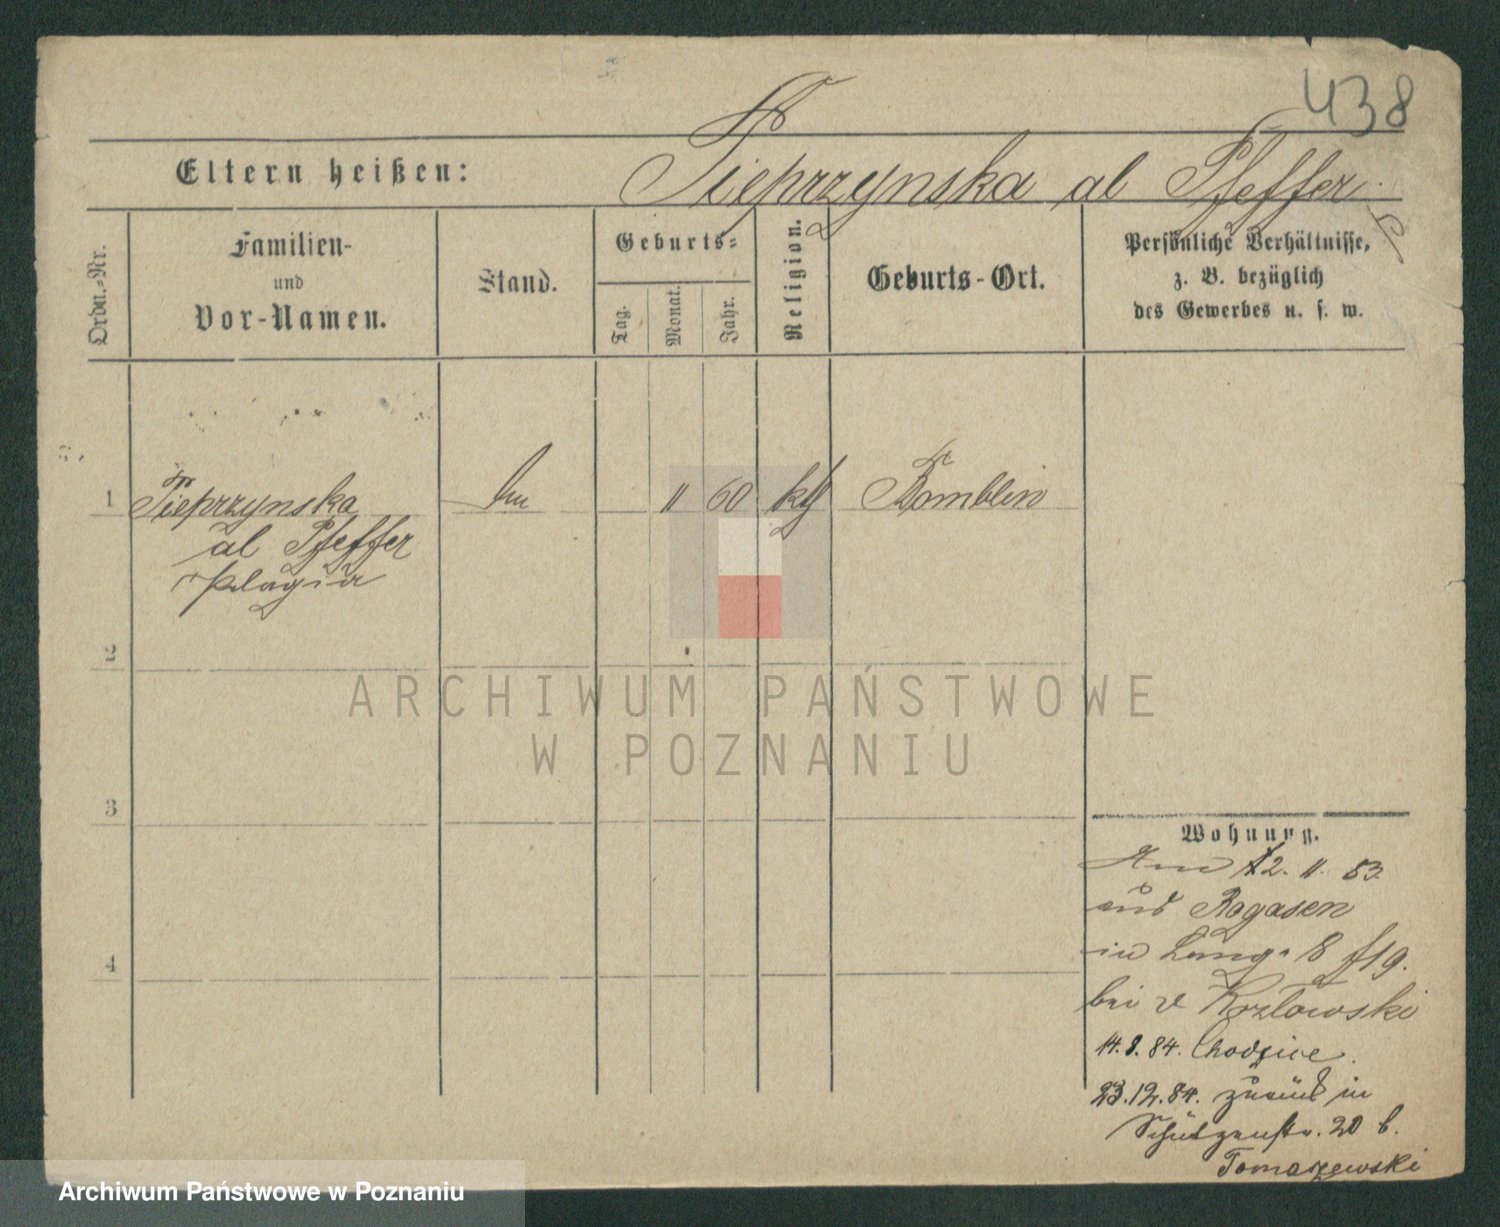 438
Eltern heißen: Pieprzynska al Pfeffer
Ordn.-Nr.
Familien-
und
Vor-Namen.
Stand.
Geburts=
Tag.
Monat.
Jahr.
Religion.
Geburts-Ort.
Persönliche Verhältnisse,
z. B. bezüglich
des Gewerbes u. s. w.
1 Pieprzynska 11 60 kth
al Pfeffer
Pelagia
2
3
4
ARCHIWUM PAŃSTWOWE
W POZNANIU
Wohnung.
12. 11. 83.
aus Rogasen
in Lang. 8
bei Kozlowski
14. 8. 84.
23.12.84. zurück in
Schützenstr. 20 b.
Tomaszewski
Archiwum Państwowe w Poznaniu